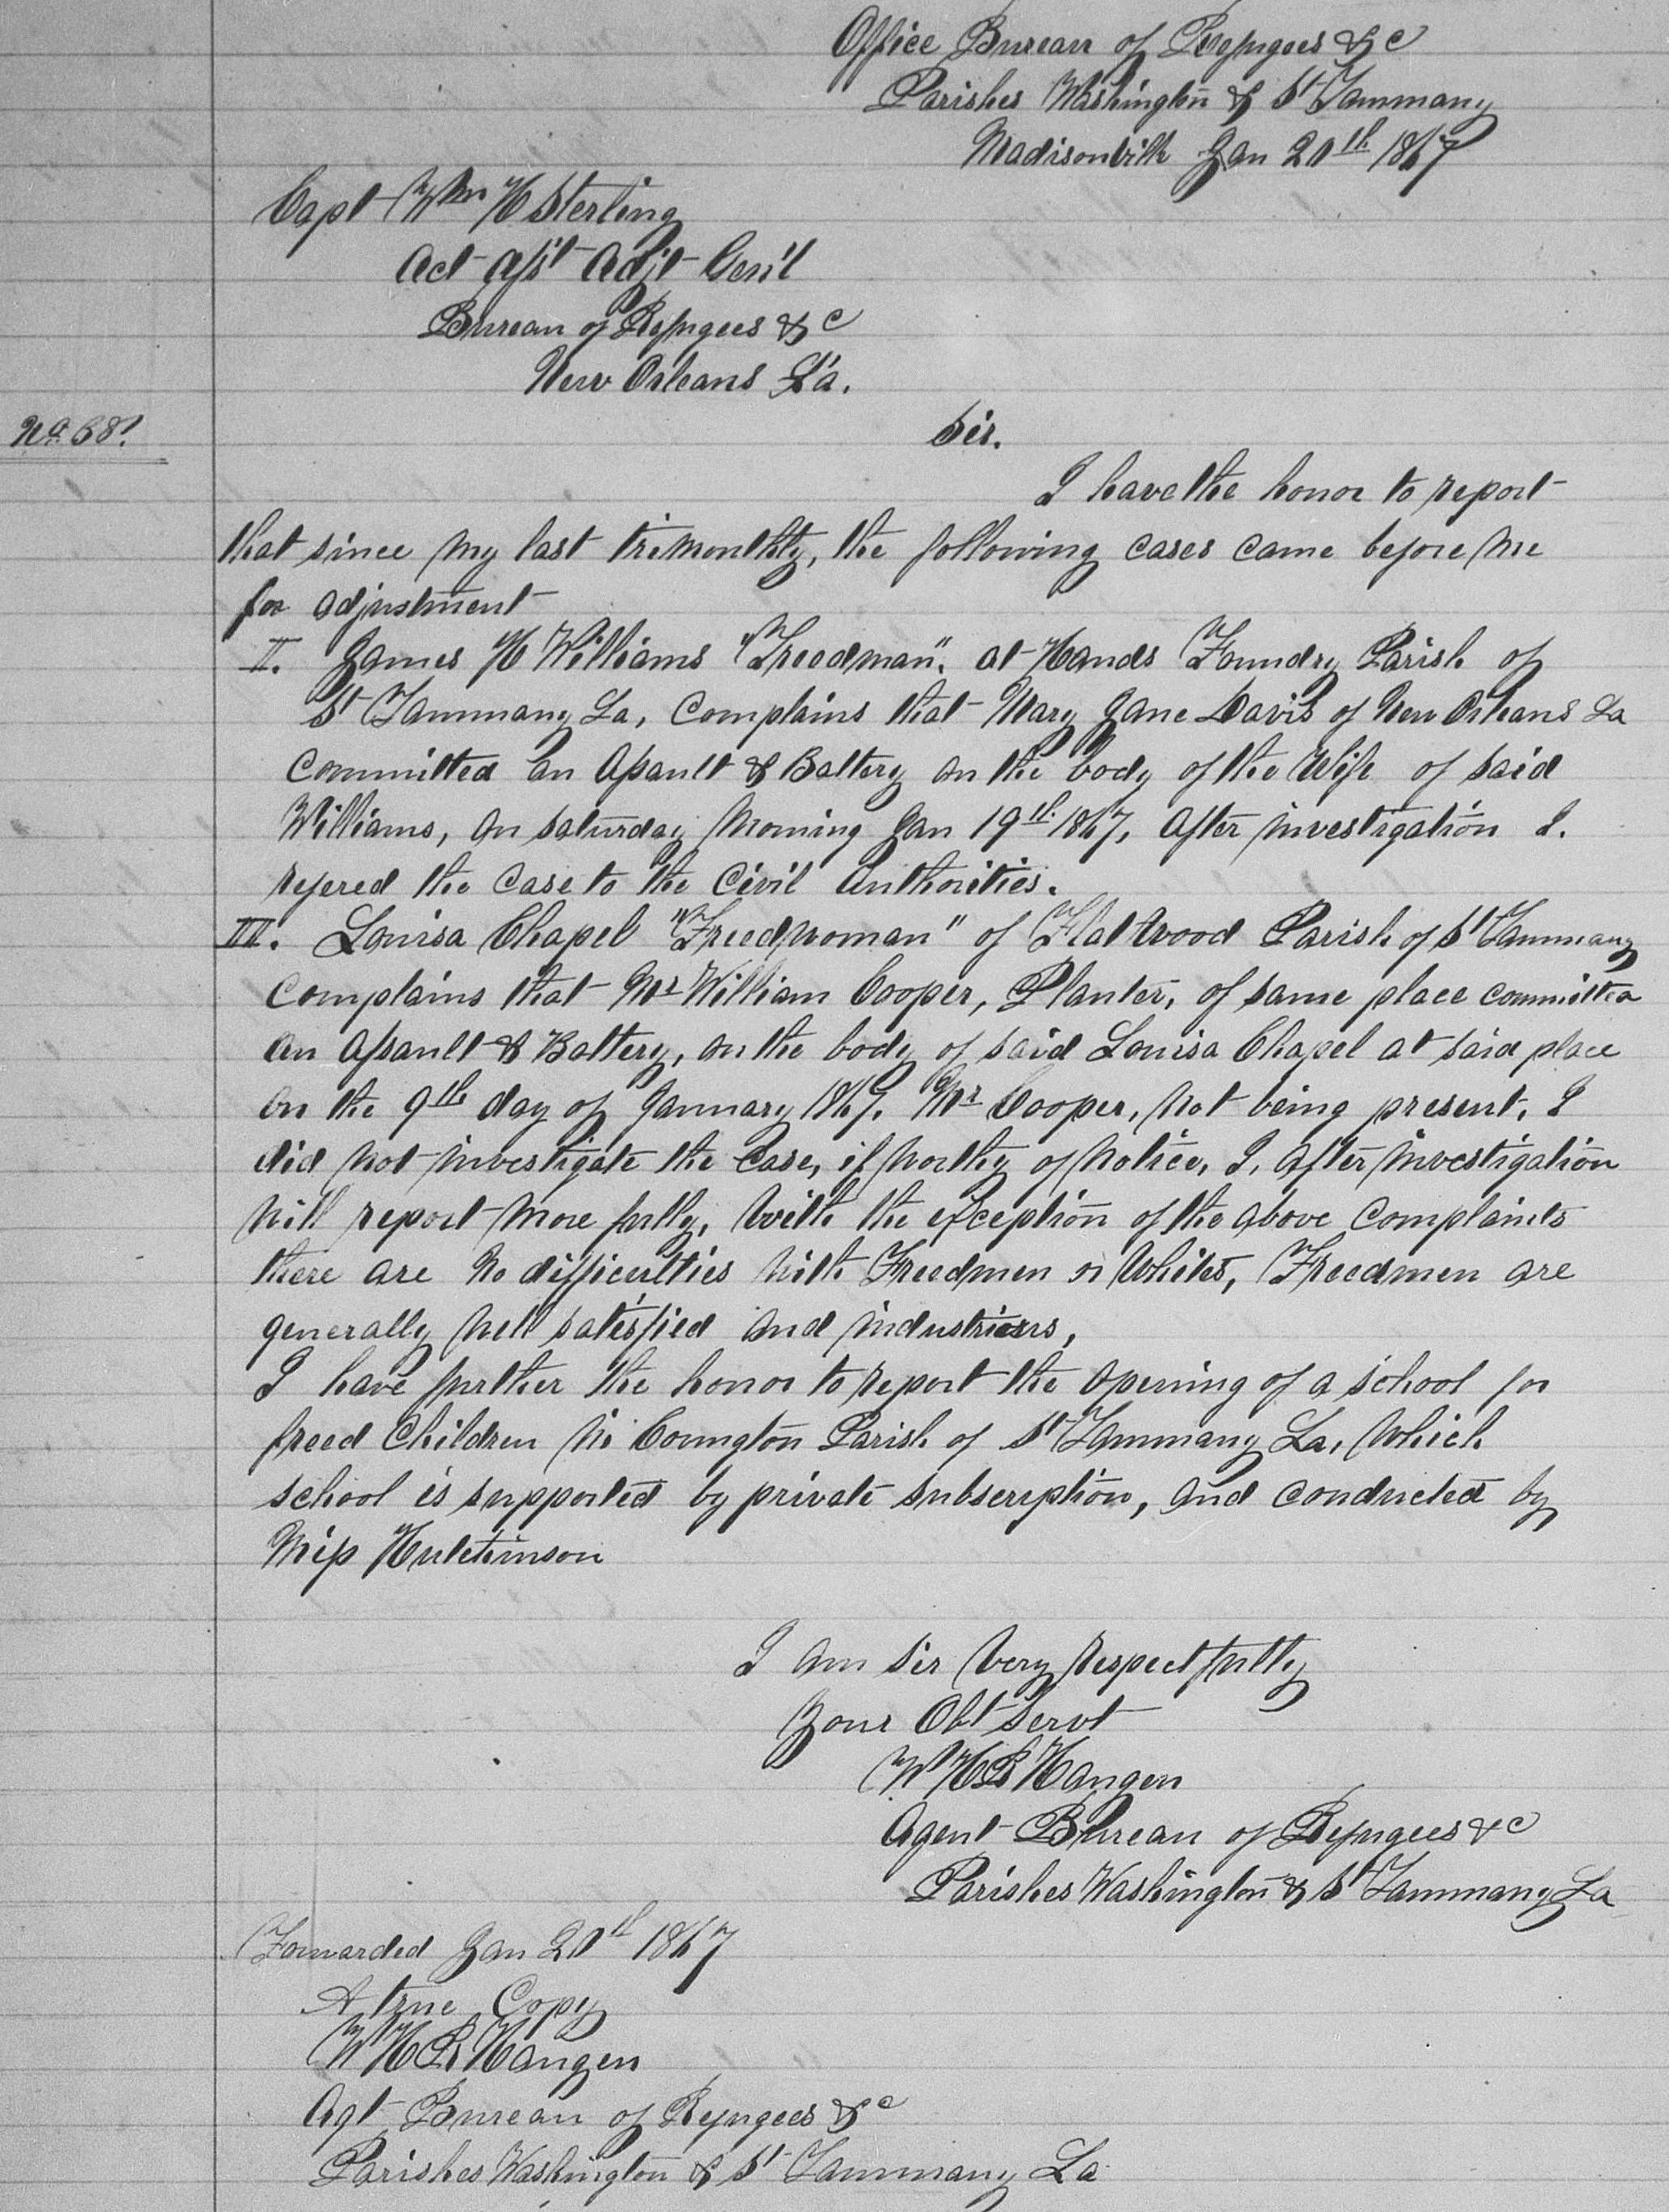 Office Bureau of Refugees &c
Parishes Washington & St Tammany
Madisonville Jan 20th 1867
Capt Wm H Sterling
Act Asst Adjt Gen'l
Bureau of Refugees &c
New Orleans La.
No 68.
Sir.
I have the honor to report
that since my last trimonthly, the following cases came before me
for adjustment
II. James H Williams "Freedman". at Hands Foundry Parish of
St Tammany La, Complains that Mary Jane Davis of New Orleans La
Committed an Assault & Battery on the body of the Wife of said
Williams, on Saturday Morning Jan 19th 1867, After investigation I.
refered the Case to the Civil Authorities.
III. Louisa Chapel "Freedwoman" of Flatwood Parish of St Tammany
Complains that Mr William Cooper, Planter, of same place committed
an Assault & Battery, on the body of said Louisa Chapel at said place
on the 9th day of January 1867. Mr Cooper, not being present, I
did not investigate the Case, if worthy of Notice, I, after investigation
will report more fully, With the exception of the above Complaints
there are no difficulties with Freedmen or Whites, Freedmen are
generally well satisfied and industrious,
I have further the honor to report the opening of a school for
freed Children in Covington Parish of St Tammany La, Which
school is supported by private subscription, and conducted by
Miss Hutchinson
I am sir Very Respectfully
Your Obt Servt
W H R Hangen
Agent Bureau of Refugees &c
Parishes Washington & St Tammany La
Forwarded Jan 20th 1867
A true Copy
W H R Hangen
Agt Bureau of Refugees &c
Parishes Washington & St Tammany La